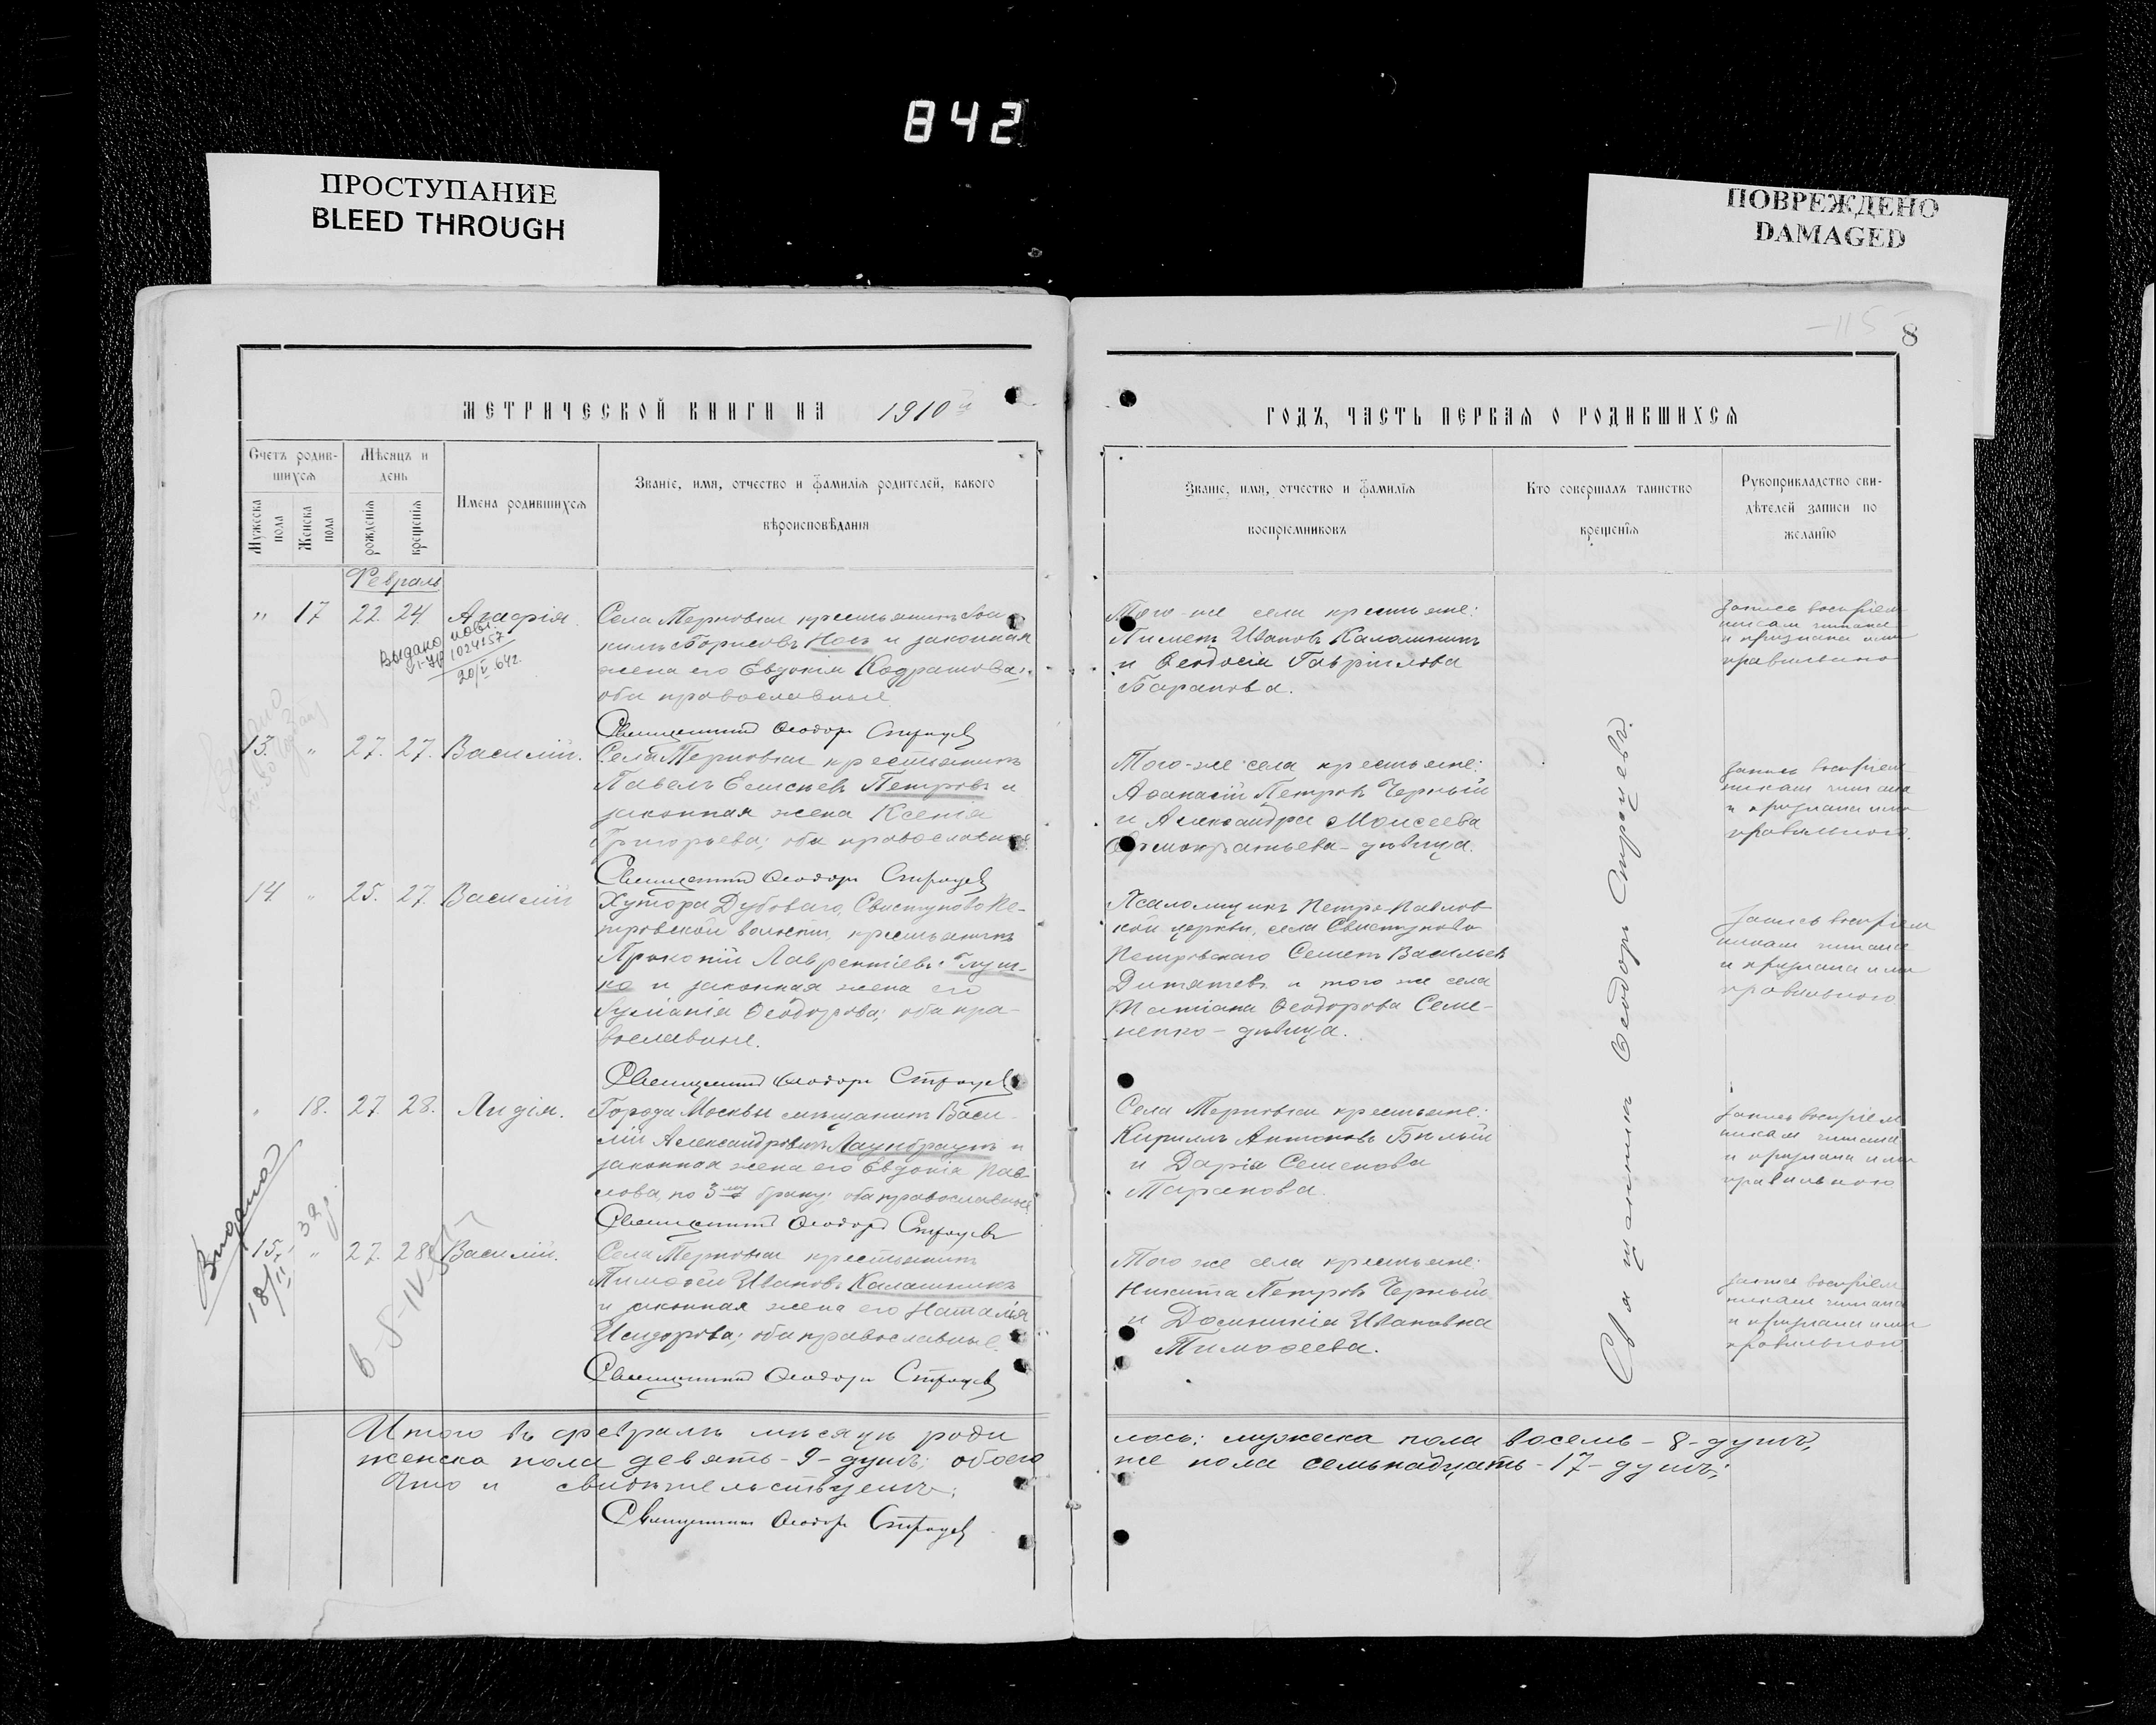 842
ПРОСТУПАНИЕ
BLEED THROUGH
ПОВРЕЖДЕНО
DAMAGED
8
МЕТРИЧЕСКОЙ КНИГИ НА 1910й
ГОДЪ, ЧАСТЬ ПЕРВАЯ О РОДИВШИХСЯ
Счетъ родив-
шихся
Мужеска пола
Женска пола
Мѣсяцъ и
день
рожденія
крещенія
Имена родившихся
Званіе, имя, отчество и фамилія родителей, какого
вѣроисповѣданія
Званіе, имя, отчество и фамилія
воспріемниковъ
Кто совершалъ таинство
крещенія
Рукоприкладство сви-
дѣтелей записи по
желанію
Февраль
" 17 22. 24. Агафія.
Выдано повт.
1024157
20/V-64г.
Села Терновки крестьянинъ
Борисовъ Носъ и законная
жена его Евдокія
оба православные
Священникъ Ѳеодоръ Строцев
Того-же села крестьяне:
Пименъ Ивановъ Калашникъ
и Ѳеодосія Гавріилова
Баранова.
Запись воспріем
никам читана
и признана ими
правильною
13. " 27. 27. Василій.
Села Терновки крестьянинъ
Павелъ Елисѣевъ Петровъ и
законная жена Ксенія
Григорьева; оба православные
Священникъ Ѳеодоръ Строцев
Того-же села крестьяне:
Аѳанасій Петровъ Черный
и Александра Моисеева
дѣвица.
Запись воспріем
никам читана
и признана ими
правильною.
14. " 25. 27. Василій
Хутора Дубоваго, Свистуново Пе-
тровской волости, крестьянинъ
Прокопій Лаврентіевъ Глуш-
ко и законная жена его
Ѳеодорова; оба пра-
вославные.
Священникъ Ѳеодоръ Строцев
Псаломщикъ Петро-Павлов
кой церкви, села Свистуново
Петровскаго Семенъ Васильевъ
Дитятевъ и того же села
Татіана Ѳеодорова Семе-
ненко - дѣвица.
Запись воспріем
никам читана
и признана ими
правильною
" 18. 27. 28. Лидія.
Города Москвы мѣщанинъ Васи-
лій Александровичъ Лаунбраунъ и
законная жена его Евдокія Пав
лова, по 3му браку; оба православные
Священникъ Ѳеодоръ Строцевъ
Села Терновки крестьяне:
Кириллъ Антоновъ Бѣлый
и Дарія Семенова
Таранова.
Запись воспріем
никам читана
и признана ими
правильною
Выдано
15. " 27. 28. Василій.
Села Терновки крестьянинъ
Тимоѳей Ивановъ Калашникъ
и законная жена его Наталія
Исидорова; оба православные.
Священникъ Ѳеодоръ Строцев
Того же села крестьяне:
Никита Петровъ Черный
и Домникія Ивановна
Тимоѳеева.
Запись воспріем
никам читана
и признана ими
правильною
Священникъ Ѳеодоръ Строцевъ.
Итого въ февралѣ мѣсяцѣ роди
лось: мужеска пола восемь - 8 - душъ,
женска пола девять - 9 - душъ; обоего
же пола семьнадцать - 17 - душъ;
Что и свидѣтельствуетъ:
Священникъ Ѳеодоръ Строцев